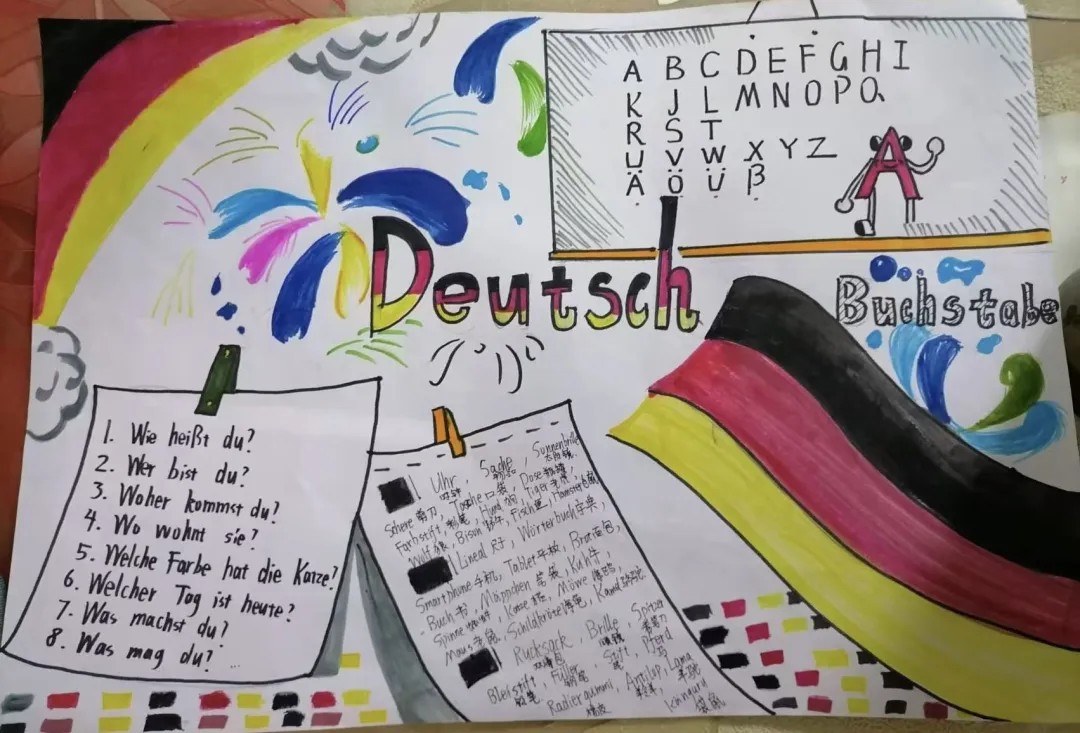 A B C D E F G H I
K J L M N O P Q
R S T
U V W X Y Z
Ä Ö Ü β
A
Deutsch
Buchstabe
1. Wie heißt du?
2. Wer bist du?
3. Woher kommst du?
4. Wo wohnt sie?
5. Welche Farbe hat die Karze?
6. Welcher Tag ist heute?
7. Was machst du?
8. Was mag du?
Uhr, Sache, Sonnenbrille
Schere 剪刀, Tasche 口袋, Dose
Farbstift, Hund 狗, Tiger 老虎, Hamster
Wolf 狼, Bison 野牛, Fisch 鱼
Lineal 尺子, Wörterbuch 字典,
Smartphone 手机, Tablet 平板, Brot 面包,
Buch 书, Mäppchen 笔袋, Kuh 牛
Spinne 蜘蛛, Katze 猫, Möwe 海鸥,
Maus 老鼠, Schildkröte 海龟, Kamel 骆驼
Rucksack, Brille, Spitzer
双肩包 眼镜
Bleistift, Füller, Stift, Pferd
铅笔 钢笔 笔 马
Radiergummi, Antilop, Lama
橡皮 羚羊 羊驼
Känguru
袋鼠